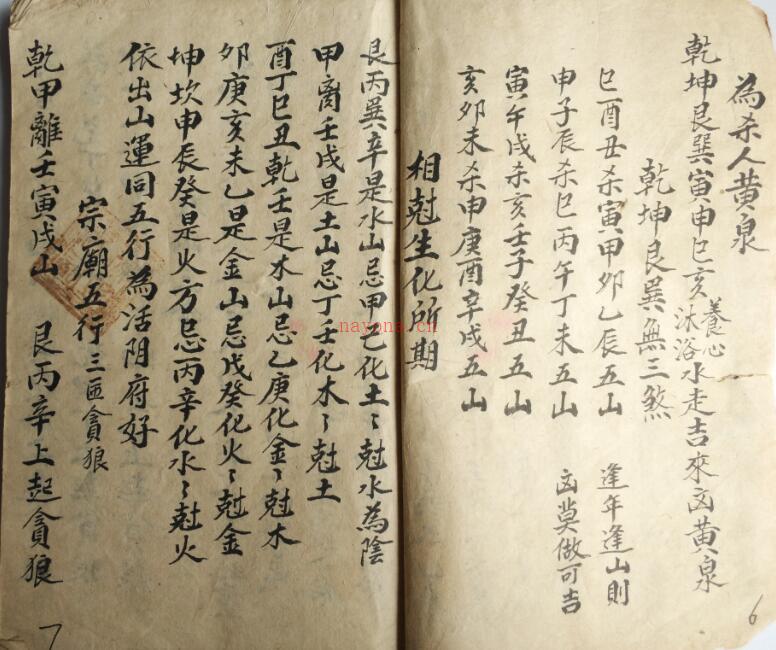 為杀人黄泉
乾坤艮巽寅申巳亥養心沐浴水走吉來凶黄泉
乾坤艮巽無三煞
巳酉丑杀寅甲卯乙辰五山 逢年逢山則
申子辰杀巳丙午丁未五山 凶莫做可吉
寅午戌杀亥壬子癸丑五山
亥卯未杀申庚酉辛戌五山
相尅生化所期
6
艮丙巽辛是水山忌甲己化土〻尅水為陰
甲离壬戌是土山忌丁壬化木〻尅土
酉丁巳丑乾壬是木山忌乙庚化金〻尅木
卯庚亥未乙是金山忌戊癸化火〻尅金
坤坎申辰癸是火方忌丙辛化水〻尅火
依出山運同五行為活阴府好
宗廟五行三匝貪狼
乾甲離壬寅戌山 艮丙辛上起貪狼
7
nayona.cn